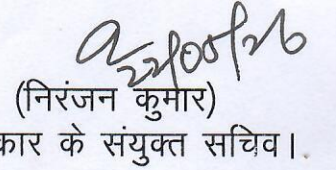 (निरंजन कुमार)
कार के संयुक्त सचिव।